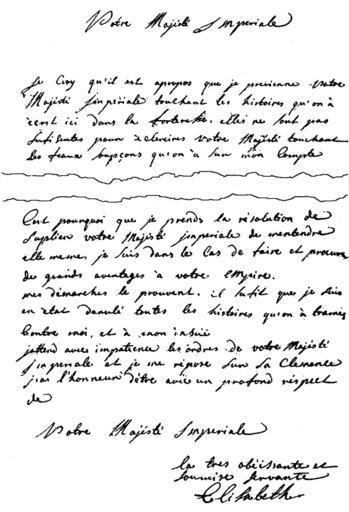 Votre Majesté Imperiale
Je Croy qu'il est apropos que je previenne votre
Majesté jmperiale touchant les histoires qu'on à
ecrit ici dans la forteresse. elles ne sont pas
sufisentes pour éclereires votre Majesté touchant
les feaux soupçons qu'on à sur mon Compte
C'est pourquoi que je prends la résolution de
Suplier votre Majesté jmperiale de m'entendre
elle meme, je suis dans le Cas de faire et procurer
des grands aventages à votre empire.
mes démarches le prouvent. il sufit que je suis
en état danulé toutes les histoires qu'on à tramés
Contre moi, et à mon insue
jattend avec impatience les ordres de votre Majesté
jmperiale et je me répose sur Sa Clemence
j'ai l'honneur d'être avec un profond respect
de
Votre Majesté Imperiale
la tres obéissante et
soumise servante
Elisabeth